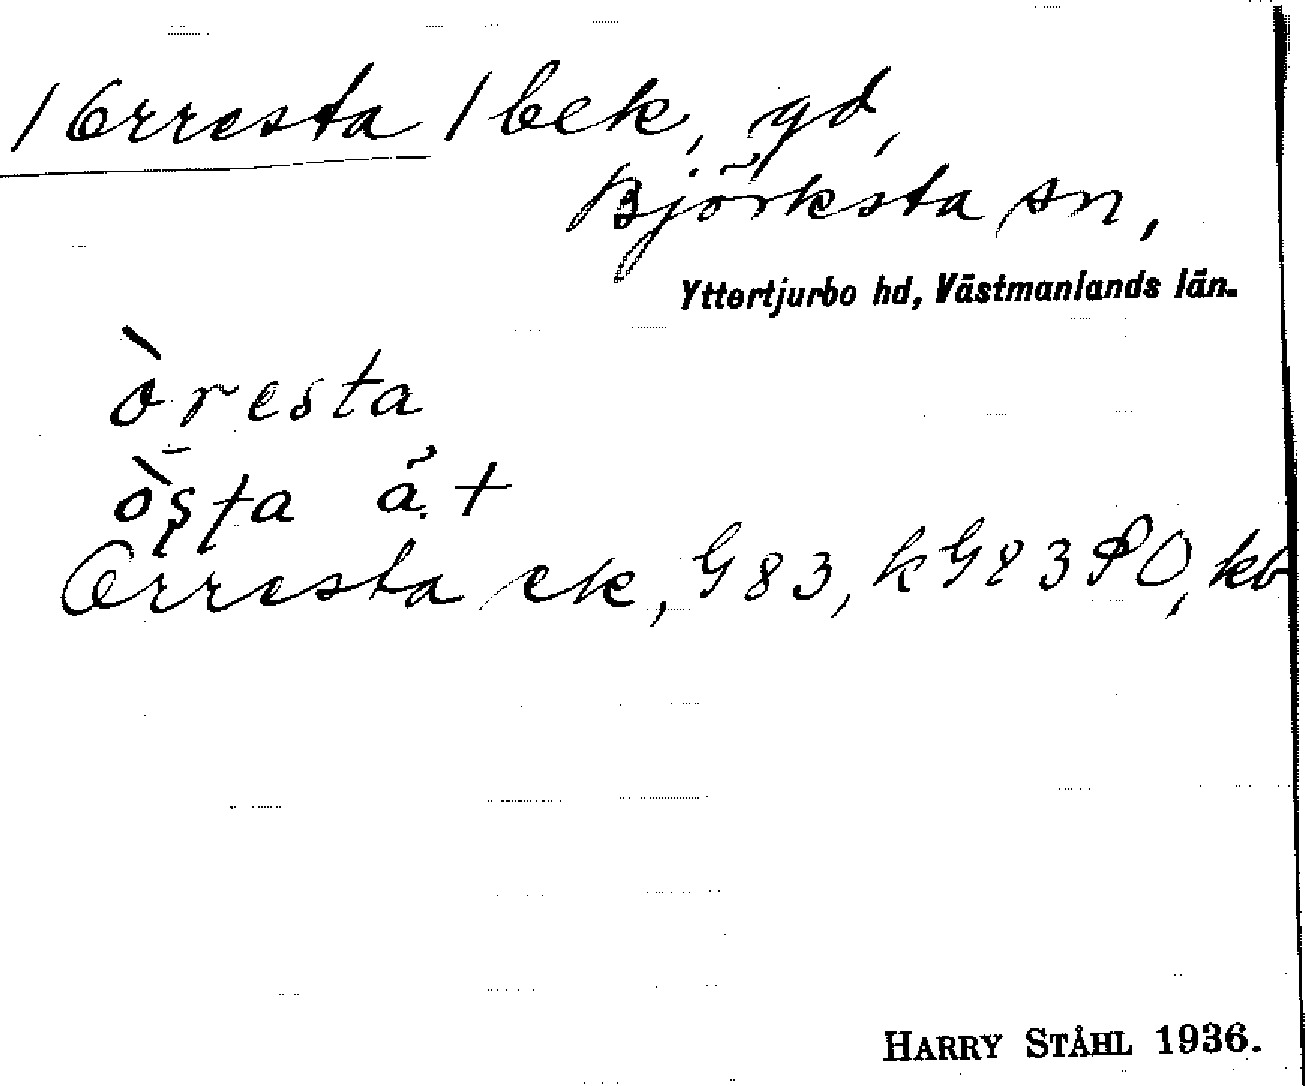 /Orresta/ bek, gd,
Björksta sn,
Yttertjurbo hd, Västmanlands län.
òresta
òsta ä. t
Orresta ek, G83, kG83 PO, kb
HARRY STÅHL 1936.